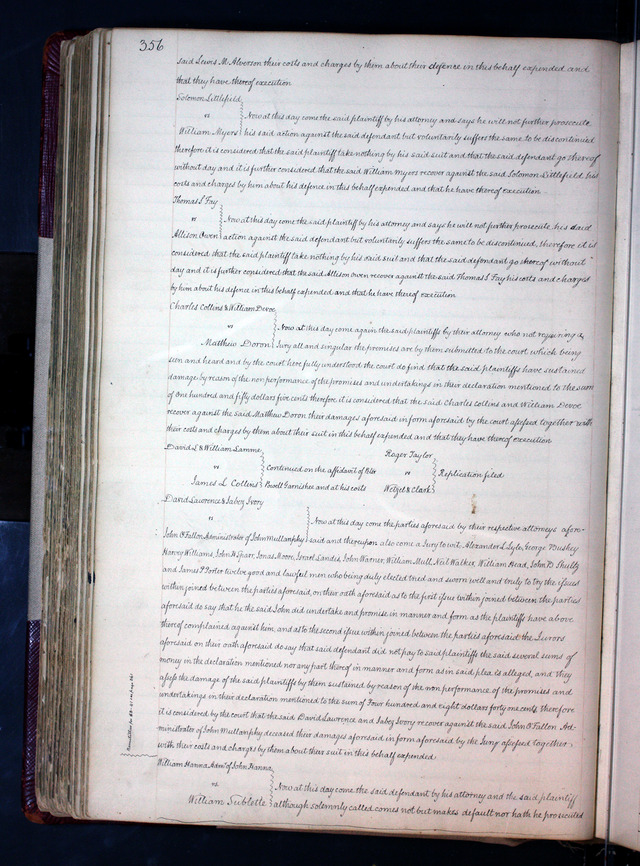 356
said Lewis M. Alverson their costs and charges by them about their defence in this behalf expended and
that they have thereof execution
Solomon Littlefield
vs
William Myers
Now at this day come the said plaintiff by his attorney and says he will not further prosecute
his said action against the said defendant but voluntarily suffers the same to be discontinued
therefore it is considered that the said plaintiff take nothing by his said suit and that the said defendant go thereof
without day and it is further considered that the said William Myers recover against the said Solomon Littlefield his
costs and charges by him about his defence in this behalf expended and that he have thereof execution
Thomas L Fay
vs
Allison Owen
Now at this day come the said plaintiff by his attorney and says he will not further prosecute his said
action against the said defendant but voluntarily suffers the same to be discontinued, therefore it is
considered that the said plaintiff take nothing by his said suit and that the said defendant go thereof without
day and it is further considered that the said Allison Owen recover against the said Thomas L Fay his costs and charges
by him about his defence in this behalf expended and that he have thereof execution
Charles Collins & William Devoe
vs
Matthew Doron
Now at this day come again the said plaintiffs by their attorney who not requiring a
Jury all and singular the premises are by them submitted to the court which being
seen and heard and by the court here fully understood the court do find that the said plaintiffs have sustained
damage by reason of the non performance of the promises and undertakings in their declaration mentioned to the sum
of one hundred and fifty dollars five cents therefore it is considered that the said Charles Collins and William Devoe
recover against the said Matthew Doron their damages aforesaid in form aforesaid by the court assessed together with
their costs and charges by them about their suit in this behalf expended and that they have thereof execution
David L & William Lamme
vs
James L Collins
Continued on the affidavit of
Powell Garnishee and at his costs
Roger Taylor
vs
Wetzel & Clark
Replication filed
David Lawrence & Jabez Ivory
vs
John O'Fallon Administrator of John Mullanphy
Now at this day come the parties aforesaid by their respective attorneys afore-
said and thereupon also come a Jury to wit, Alexander L Lyle, George Bushey
Harvey Williams, John H Sparr, Jonas Moore, Israel Landes, John Warner, William Mull, Neil Walker, William Head, John D Shultz
and James P Porter twelve good and lawful men who being duly elected tried and sworn well and truly to try the issues
within joined between the parties aforesaid, on their oath aforesaid as to the first issue within joined between the parties
aforesaid do say that he the said John did undertake and promise in manner and form as the plaintiffs have above
thereof complained against him, and as to the second issue within joined between the parties aforesaid the Jurors
aforesaid on their oath aforesaid do say that said defendant did not pay to said plaintiffs the said several sums of
money in the declaration mentioned nor any part thereof in manner and form as in said plea is alleged, and they
assess the damage of the said plaintiffs by them sustained by reason of the non performance of the promises and
undertakings in their declaration mentioned to the sum of Four hundred and eight dollars forty one cents therefore
it is considered by the court that the said David Lawrence and Jabez Ivory recover against the said John O'Fallon Ad-
ministrator of John Mullanphy deceased their damages aforesaid in form aforesaid by the Jury assessed together
with their costs and charges by them about their suit in this behalf expended.
William Hanna Admr. of John Hanna
vs.
William Sublette
Now at this day come the said defendant by his attorney and the said plaintiff
although solemnly called comes not but makes default nor hath he prosecuted